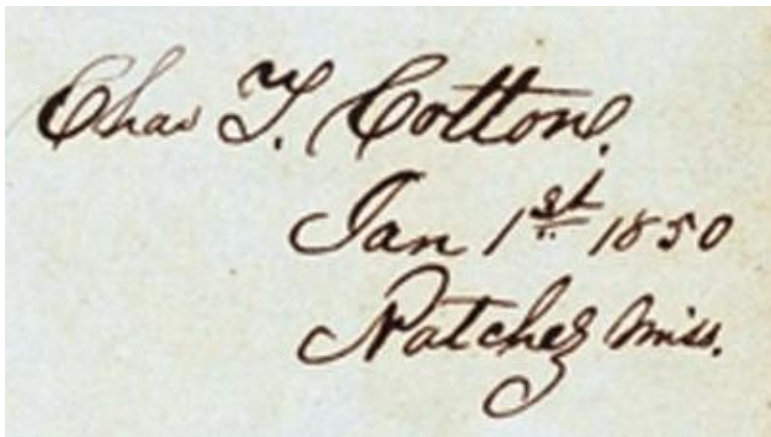 Chas T. Cotton.
Jan 1st 1850
Natchez Miss.